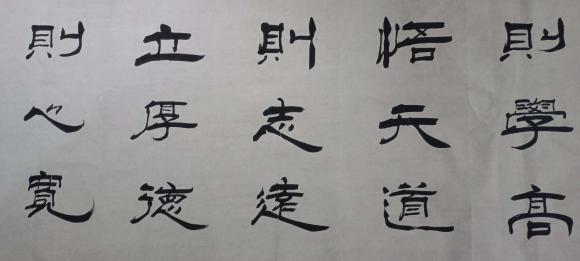 則學高
悟天道
則志遠
立厚德
則心寬